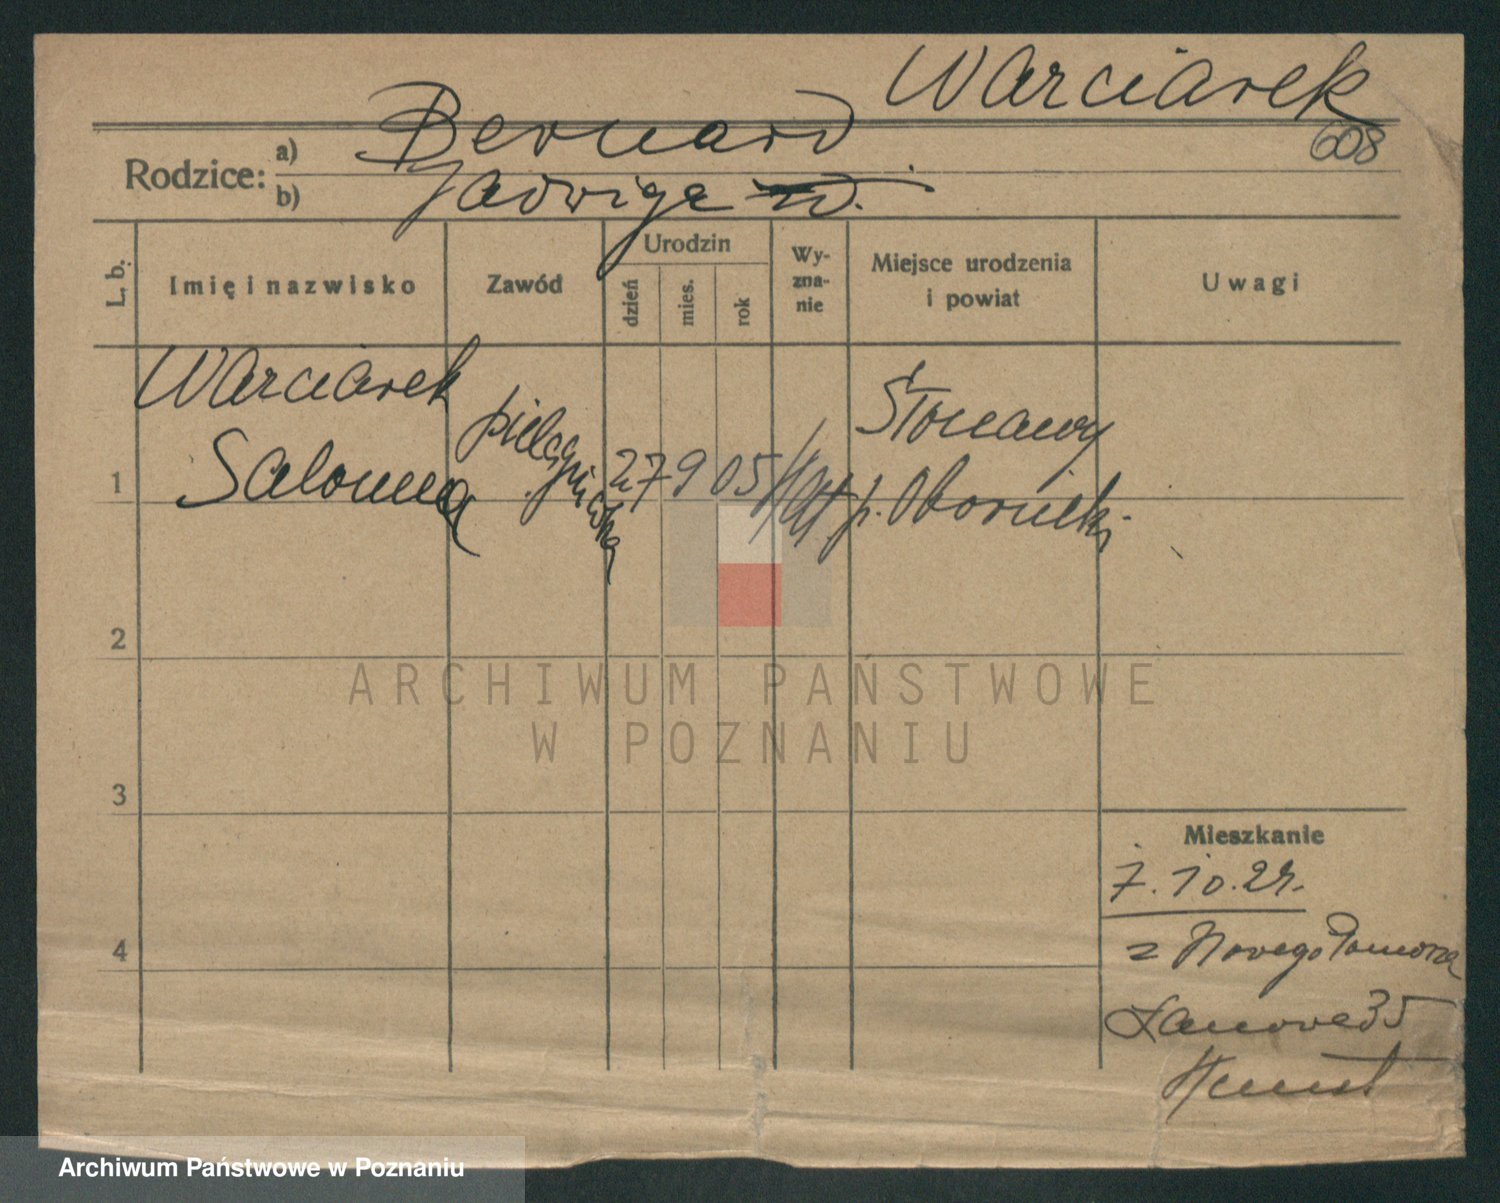 Warciarek
608
Rodzice: a) Bernard
b) Jadwiga
L. b. Imię i nazwisko Zawód Urodzin Wyznanie Miejsce urodzenia i powiat Uwagi
dzień mies. rok
Warciarek
Salomea
pielęgniarka
1 27 9 05 kat
Słonawy
p. Obornicki
2
ARCHIWUM PAŃSTWOWE
W POZNANIU
3
Mieszkanie
7.10.27.
4
z Nowego Tomyśla
Łanowa 35
Archiwum Państwowe w Poznaniu